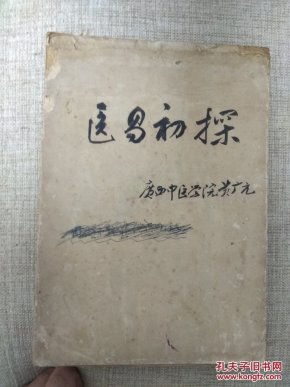 医易初探
广西中医学院黄广元
孔夫子旧书网